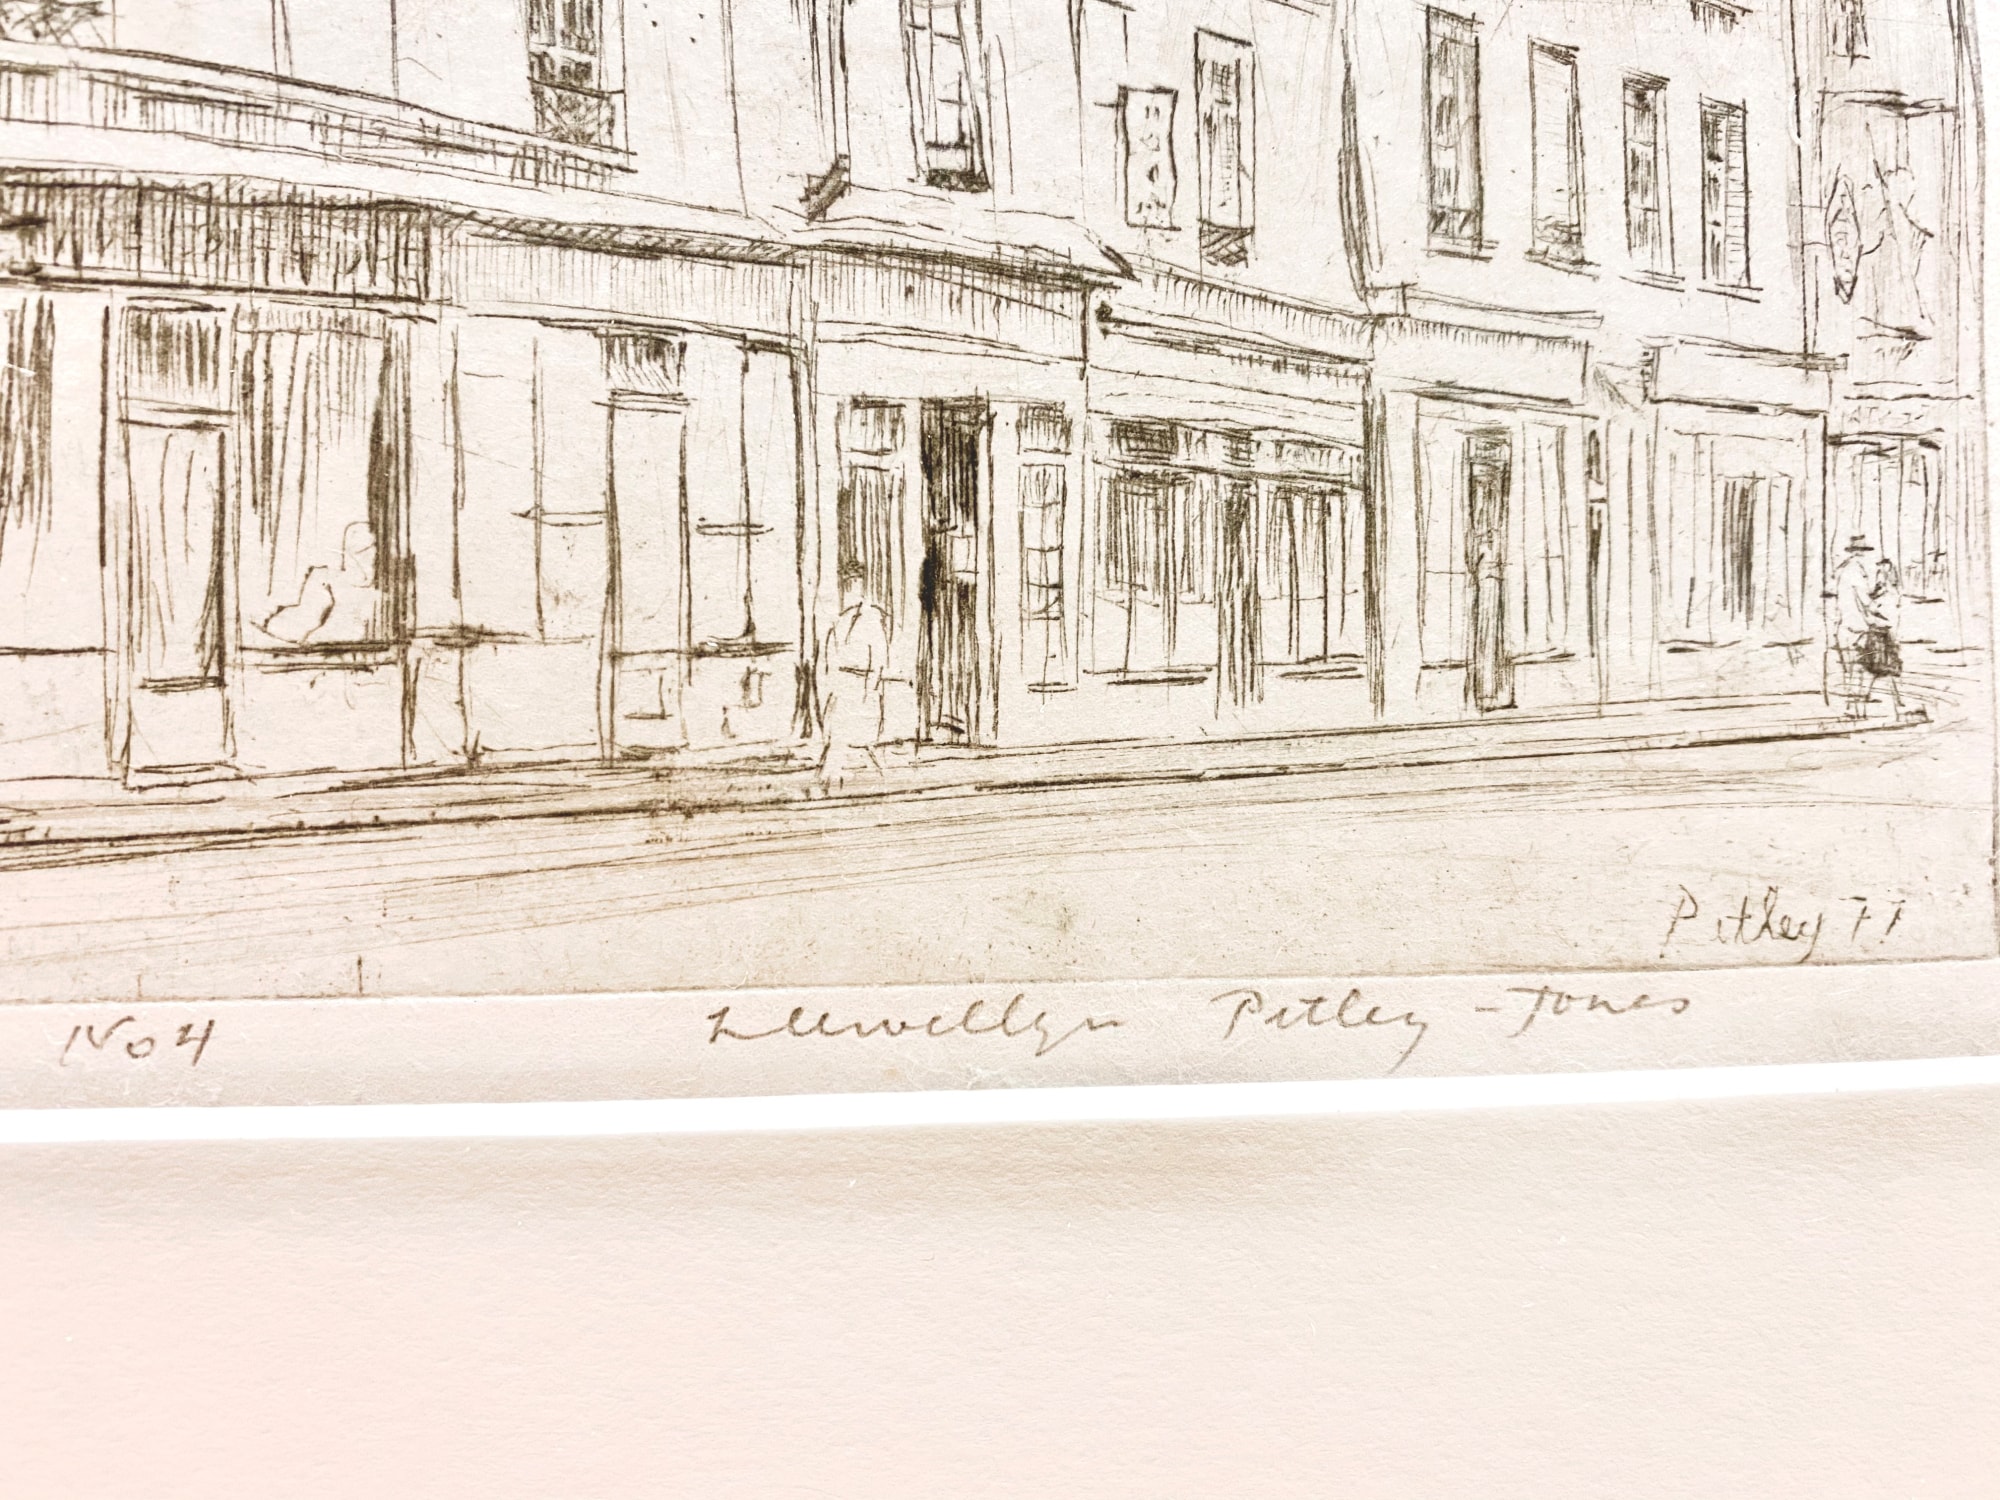 Pitley 77
No 4 Llewellyn Pitley-Jones